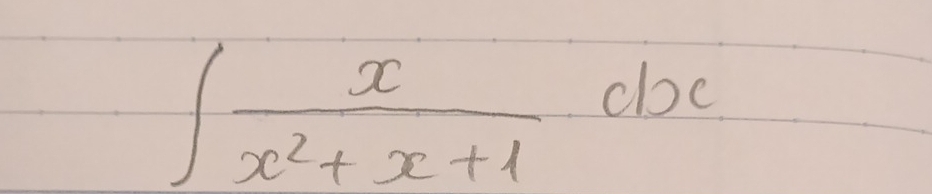 ∫ x / (x² + x + 1) dx